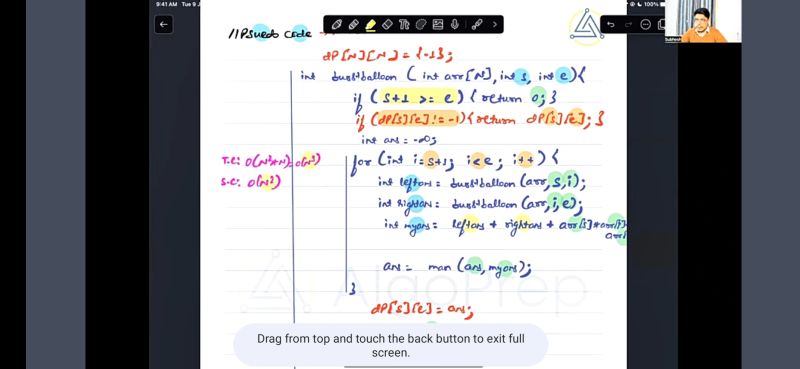 9:41 AM Tue 9 J
100%
//Psuedo code →
dP[N][N] = {-1};
int burstballon ( int arr[N], int s, int e){
if ( s+1 >= e) { return 0; }
if (dP[s][e] != -1){ return dP[s][e]; }
int ans = -∞;
T.C: O(N²*N)=O(N³)
for (int i=s+1; i<e; i++) {
S.C: O(N²)
int leftans = burstballoon (arr,s,i);
int rightans = burstballoon (arr,i,e);
int myans = leftans + rightans + arr[s]*arr[i]*
arr[
ans = max (ans, myans);
}
AlgoPrep
dP[s][e] = ans;
Drag from top and touch the back button to exit full
screen.